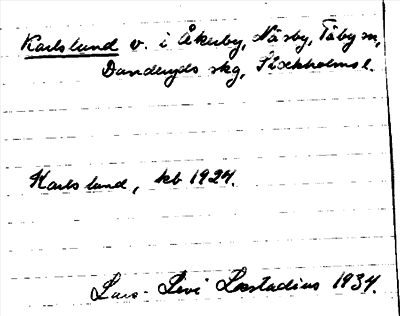 Karlslund v. i Åkerby, Näsby, Täby sn,
Danderyds skg, Stockholms l.
Karlslund, kb 1924.
Lars-Levi Læstadius 1934.